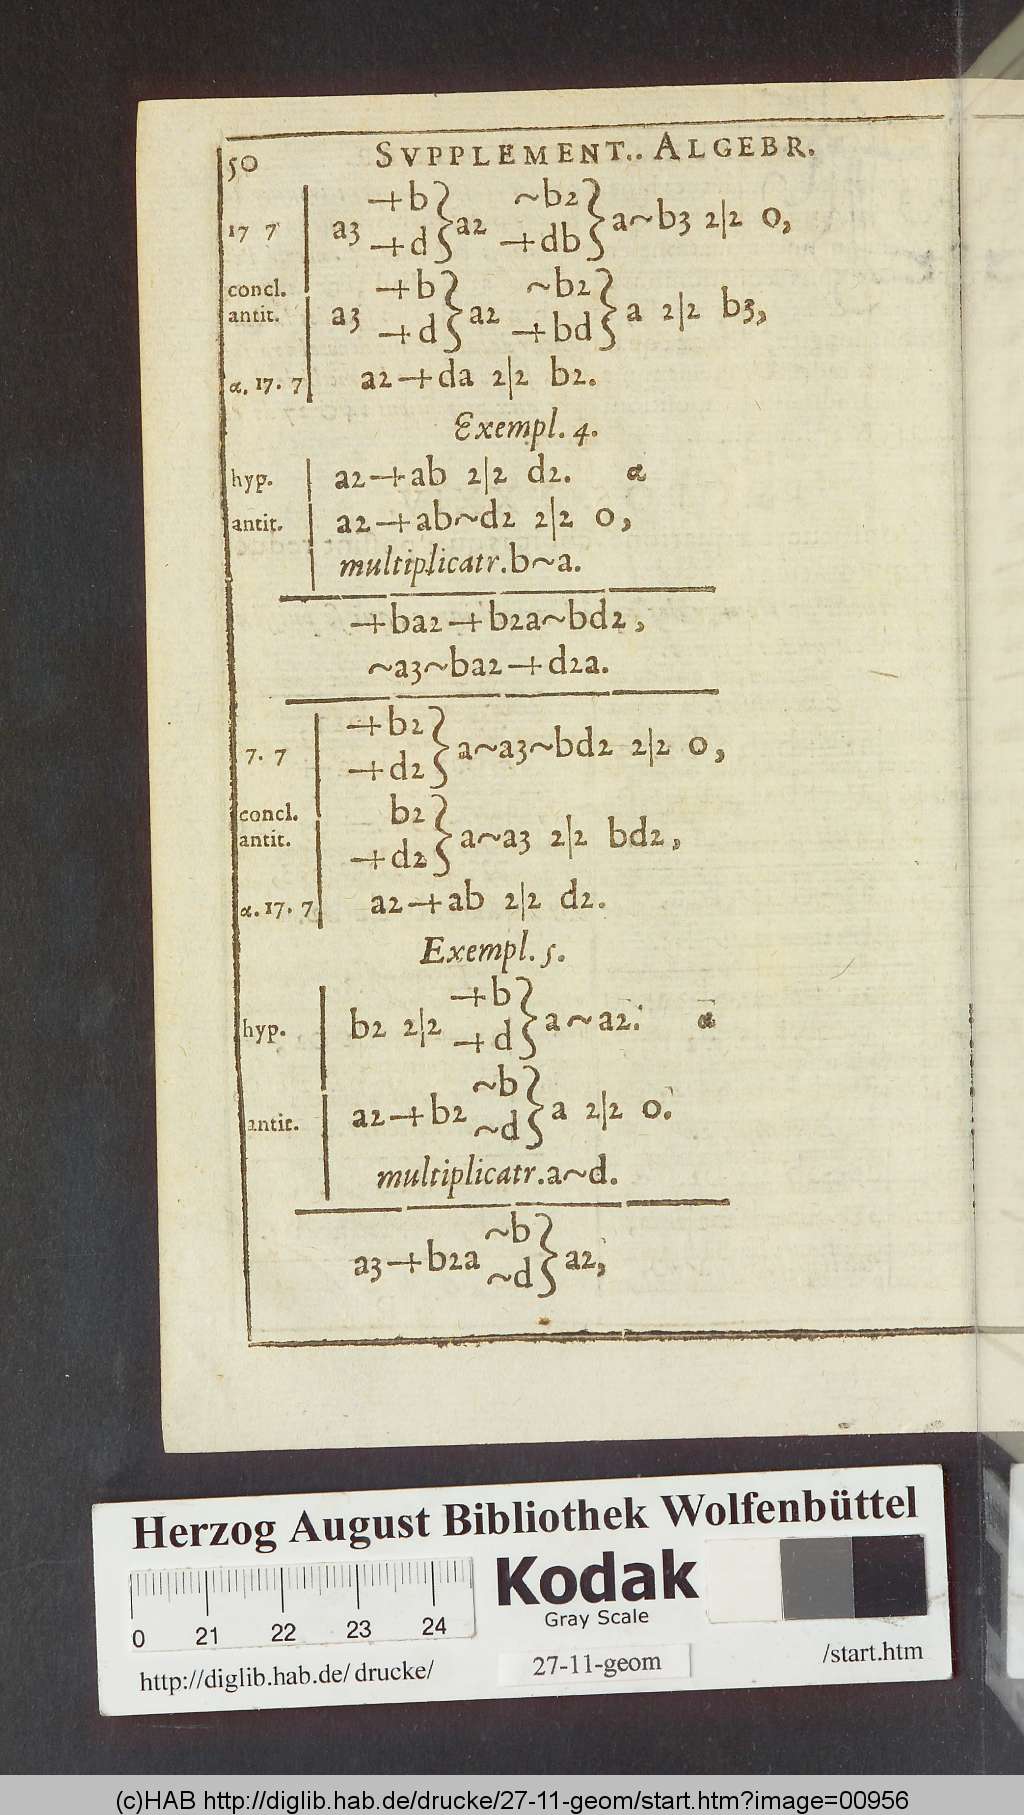 50 SVPPLEMENT.. ALGEBR.
+b} ~b2}
17 7 a3 a2 a~b3 2|2 0,
+d} +db}
concl. +b} ~b2}
antit. a3 a2 a 2|2 b3,
+d} +bd}
α. 17. 7 a2+da 2|2 b2.
Exempl. 4.
hyp. a2+ab 2|2 d2. α
antit. a2+ab~d2 2|2 0,
multiplicatr.b~a.
+ba2+b2a~bd2,
~a3~ba2+d2a.
+b2}
7. 7 a~a3~bd2 2|2 0,
+d2}
concl. b2}
antit. a~a3 2|2 bd2,
+d2}
α. 17. 7 a2+ab 2|2 d2.
Exempl. 5.
+b}
hyp. b2 2|2 a~a2. α
+d}
~b}
antit. a2+b2 a 2|2 0.
~d}
multiplicatr.a~d.
~b}
a3+b2a a2,
~d}
Herzog August Bibliothek Wolfenbüttel
Kodak
Gray Scale
0 21 22 23 24
http://diglib.hab.de/drucke/ 27-11-geom /start.htm
(c)HAB http://diglib.hab.de/drucke/27-11-geom/start.htm?image=00956